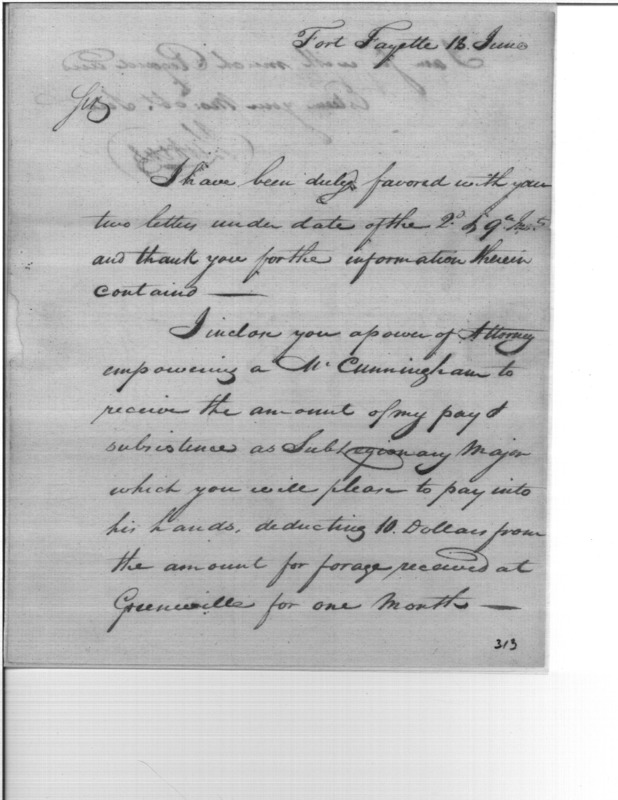 Fort Fayette 18 June
Sir
I have been duly favored with your
two letters under date of the 2d & 9th Inst
and thank you for the information therein
containd —
I inclose you a power of Attorney
empowering a Mr Cunningham to
receive the amount of my pay &
subsistence as Sublegionary Major
which you will please to pay into
his hands, deducting 10 Dollars from
the amount for forage received at
Greenville for one Month —
313